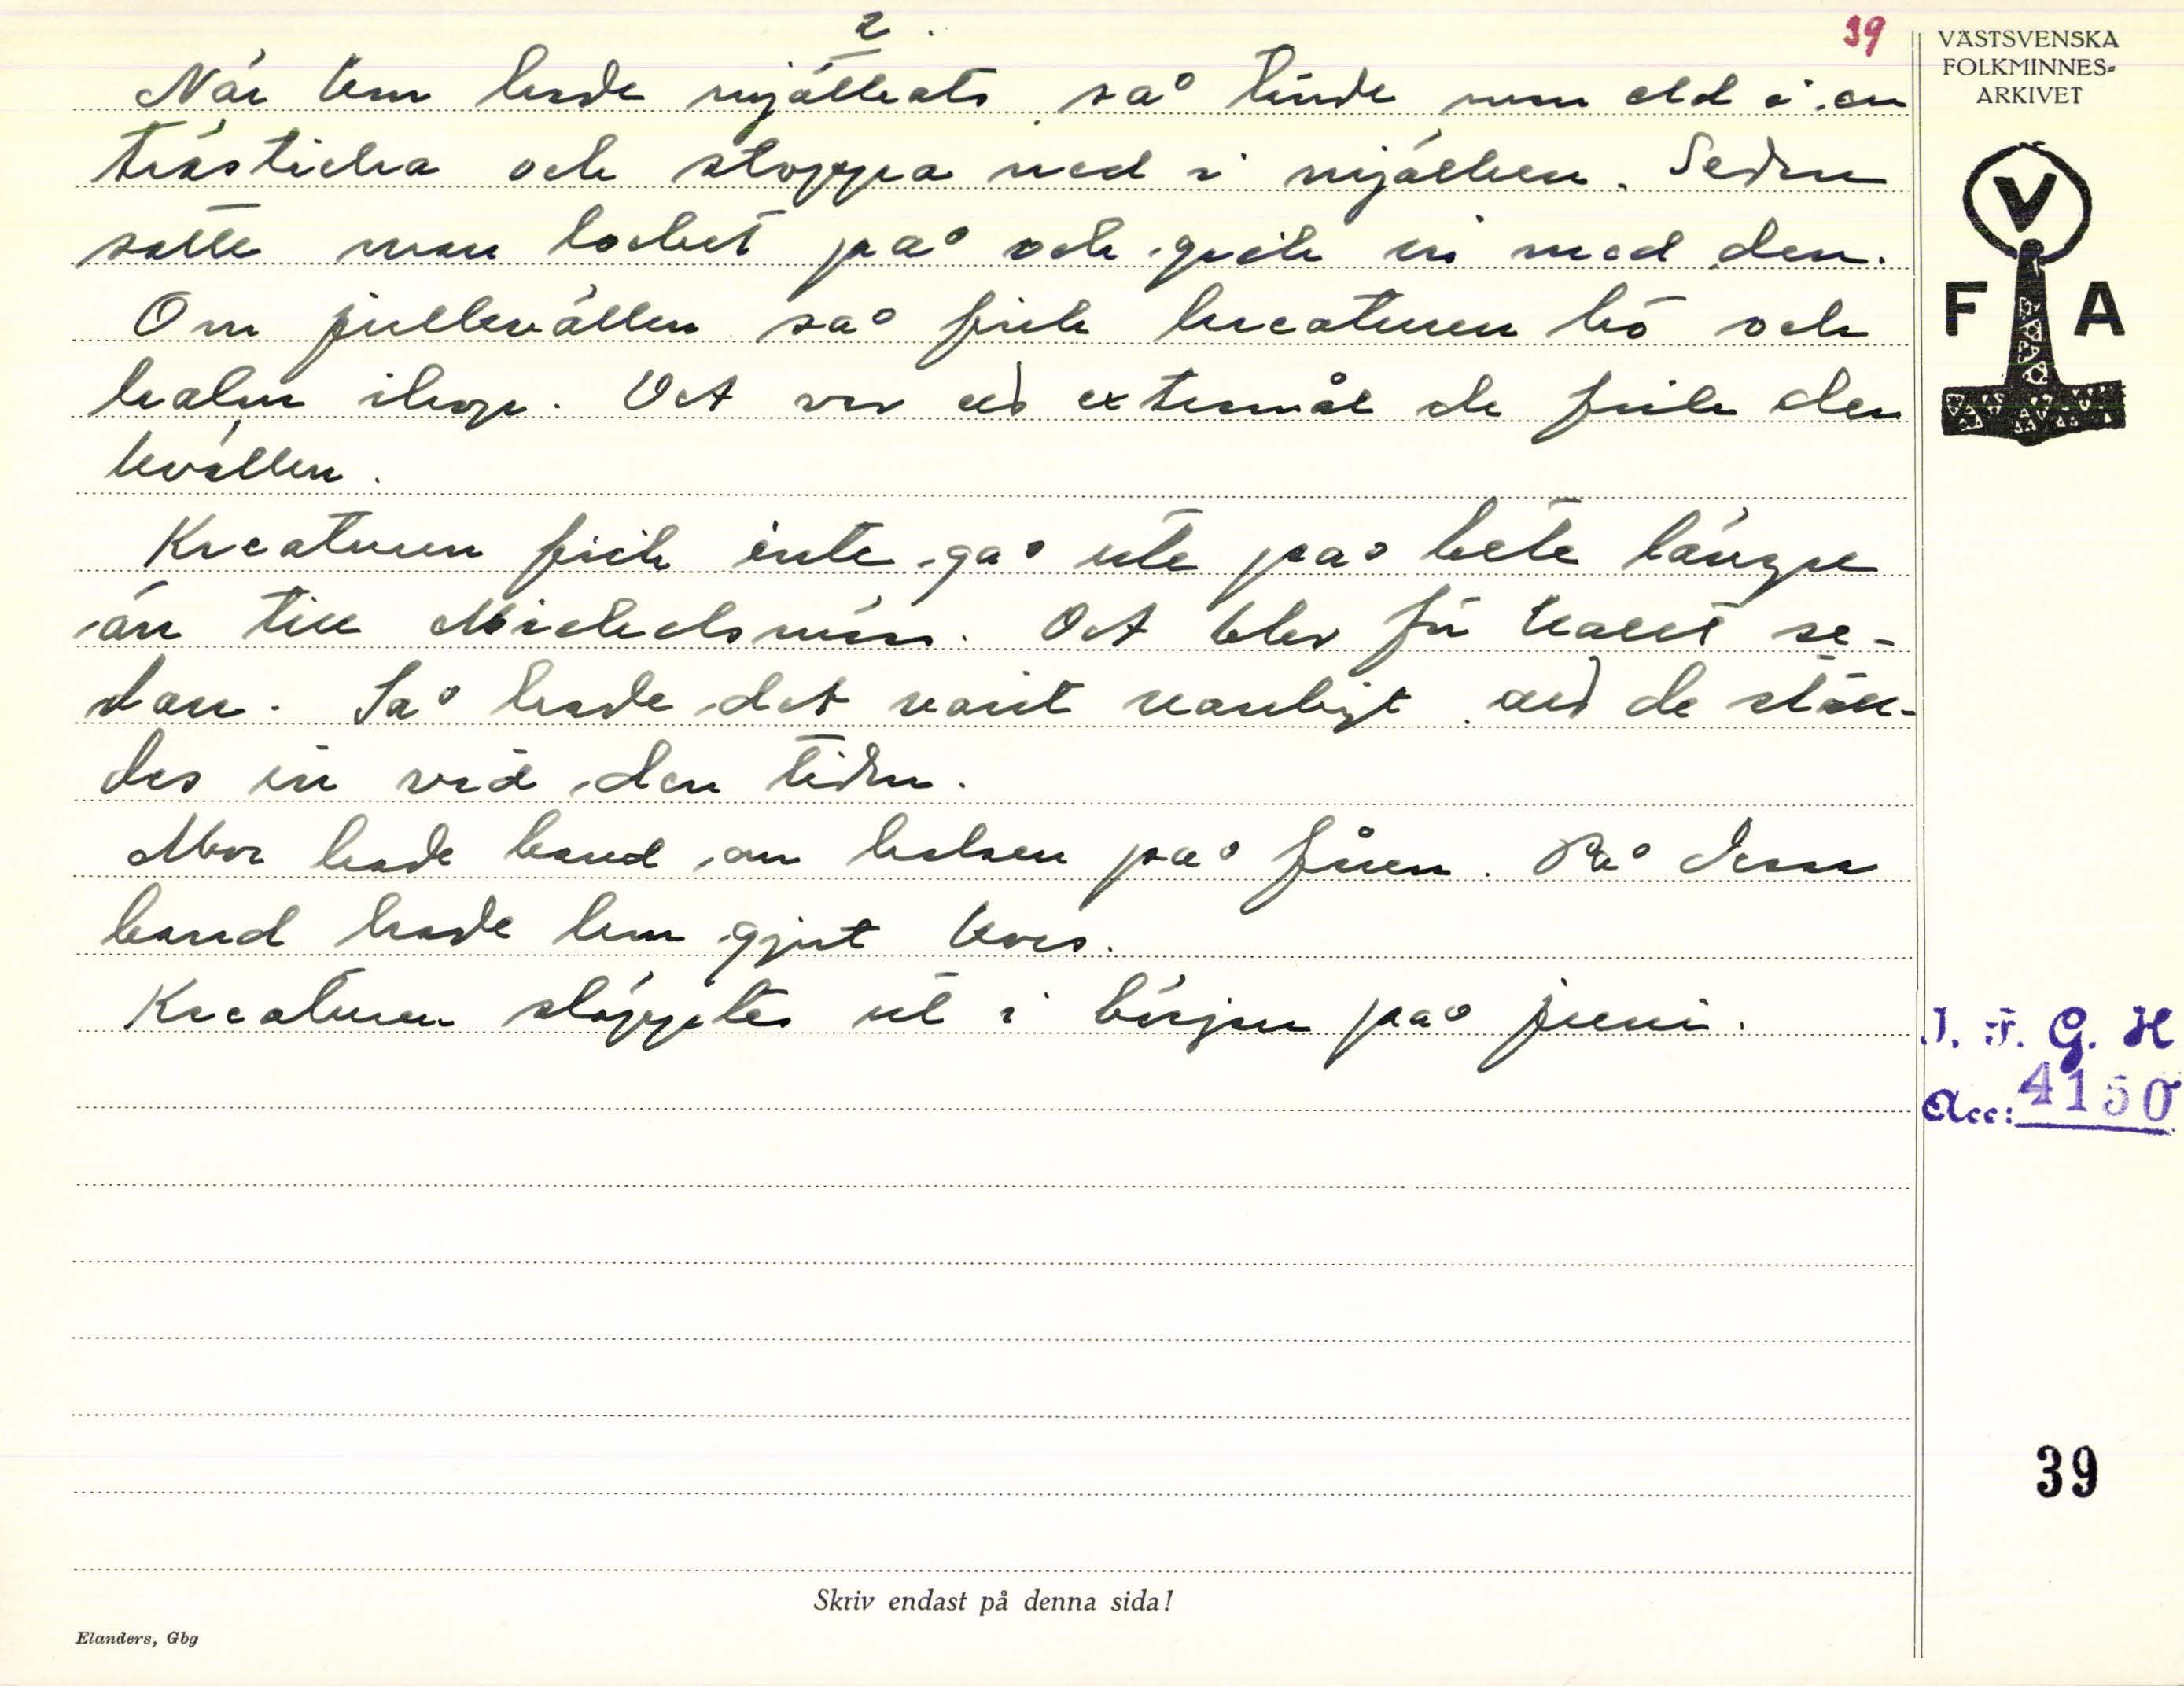 2.
39
När kon hade mjölkats så tände man eld i en
trästicka och stoppa ned i mjölken. Sedan
satte man locket på och gick in med den.
Om julkvällen så fick kreaturen hö och
halm ihop. Det var ett extramål de fick den
kvällen.
Kreaturen fick inte gå ute på bete längre
än till Mickelsmäss. Det blev för kallt se-
dan. Så hade det varit vanligt att de ställ-
des in vid den tiden.
Mor hade band om halsen på fåren. På dessa
band hade hon gjut kors.
Kreaturen släpptes ut i början på juni.
VÄSTSVENSKA
FOLKMINNES-
ARKIVET
V
F A
I. F. G. H
Acc: 4150
39
Skriv endast på denna sida!
Elanders, Gbg